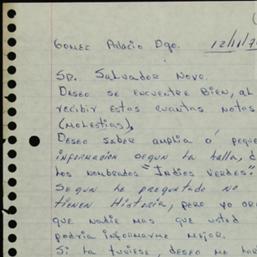 Gomez Palacio Dgo. 12/11/7
Sr. Salvador Novo.
Deseo se encuentre bien, al
recibir estas cuantas notas
(molestias),
Deseo saber amplia ó peque
informacion segun la halla, d
los nombrados "Indios Verdes".
Segun he preguntado no
tienen Historia, pero yo
que nadie mas que usted
podria informarme mejor.
Si la tuviese, deseo me